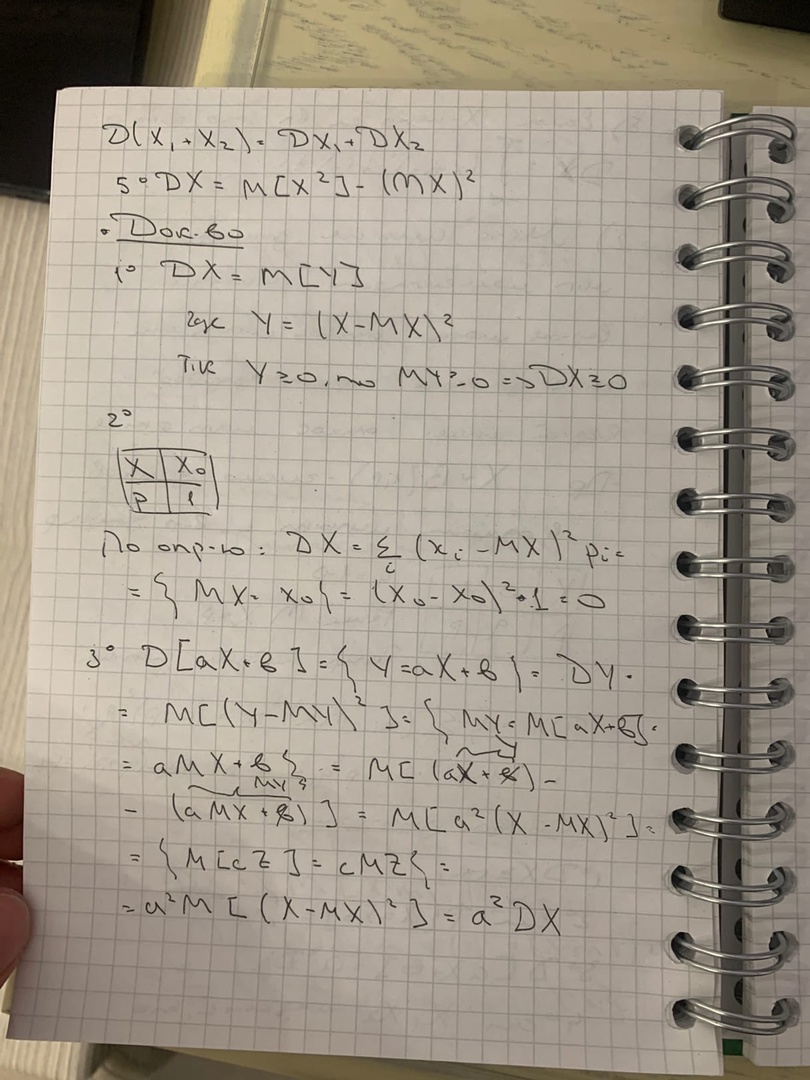 D(X₁ + X₂) = DX₁ + DX₂
5° DX = M[X²] - (MX)²
• Док-во
1° DX = M[Y]
где Y = (X - MX)²
Т.к Y ≥ 0, то MY ≥ 0 => DX ≥ 0
2°
X | X₀
P | 1
По опр-ю: DX = Σᵢ (xᵢ - MX)² pᵢ =
= { MX = x₀ } = (x₀ - x₀)² • 1 = 0
3° D[aX + в] = { Y = aX + в } = DY =
= M[(Y - MY)²] = { MY = M[aX + в] =
= aMX + в } = M[(aX + в) -
- (aMX + в)] = M[a²(X - MX)²] =
= { M[cZ] = cMZ } =
= a²M[(X - MX)²] = a²DX